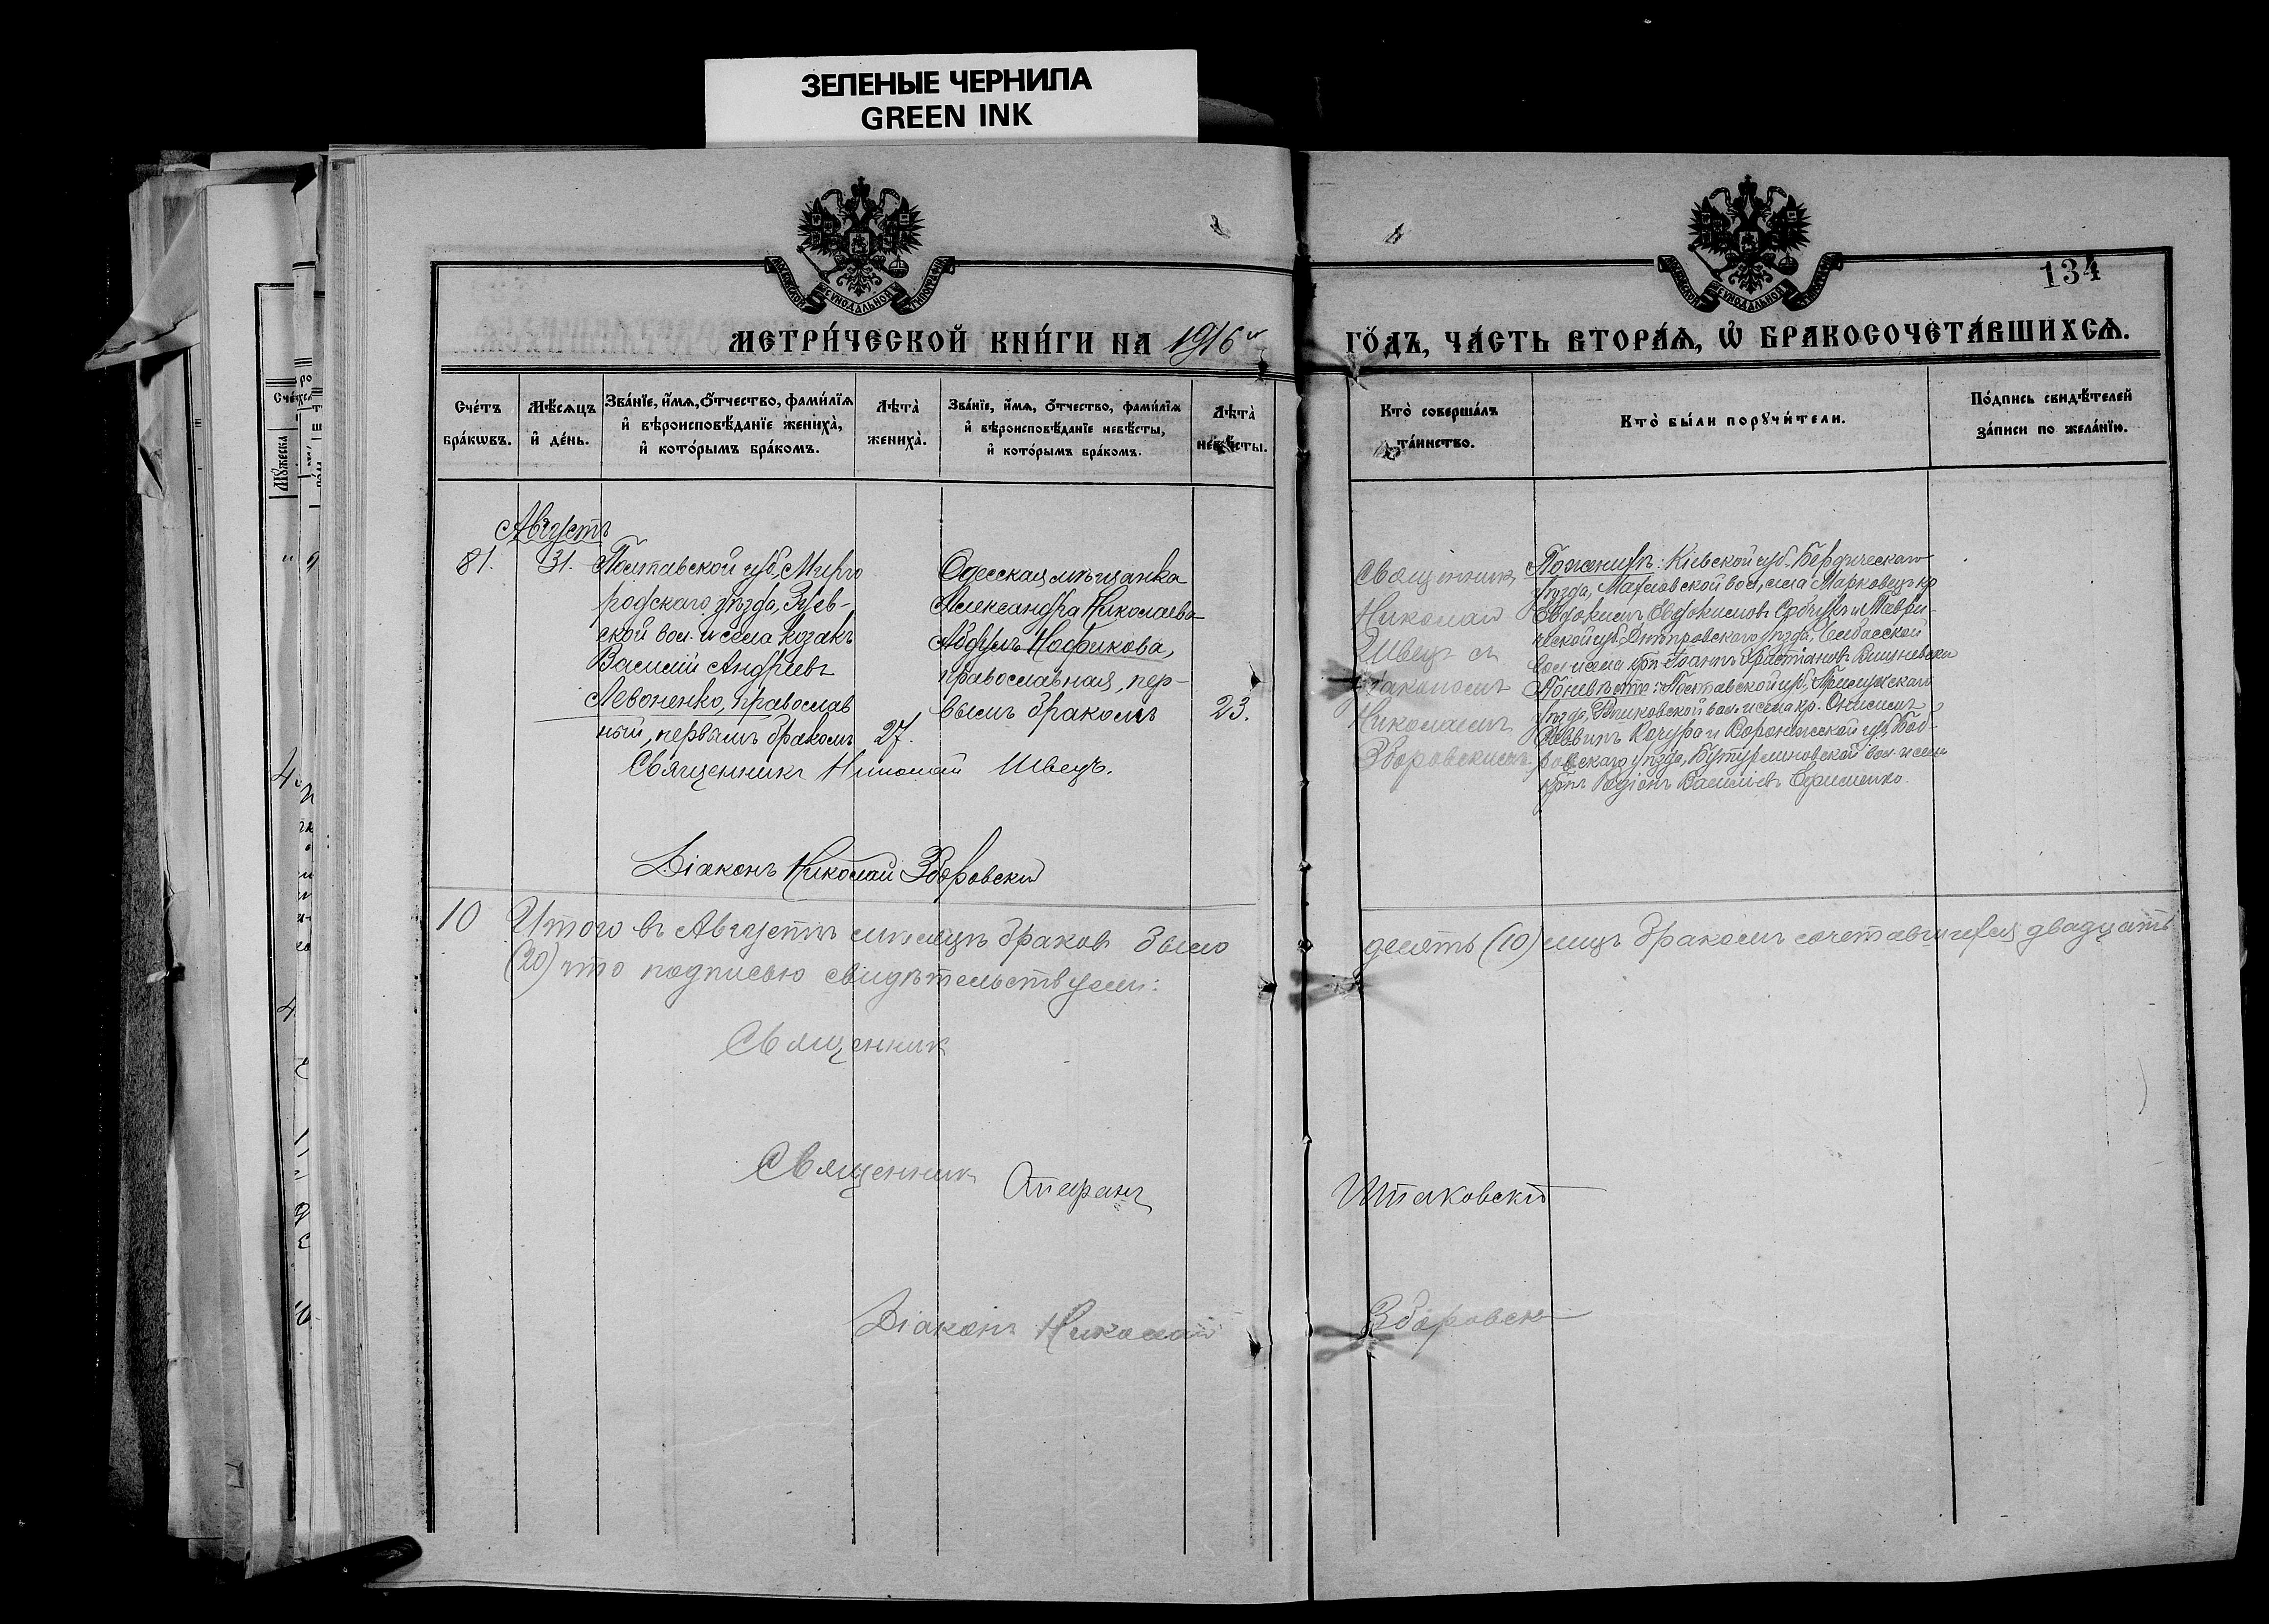 ЗЕЛЕНЫЕ ЧЕРНИЛА
GREEN INK
134
МЕТРИ́ЧЕСКОЙ КНИ́ГИ НА 1916й ГО́ДЪ, ЧА́СТЬ ВТОРА́Ѧ, Ѽ БРАКОСОЧЕТА́ВШИХСѦ.
Сче́тъ бра́кѡвъ.
Мѣ́сѧцъ и҆ де́нь.
Зва́нїе, и҆́мѧ, ѻ҆́тчество, фами́лїѧ и҆ вѣроисповѣ́данїе жениха̀, и҆ кото́рымъ бра́комъ.
Лѣта̀ жениха̀.
Зва́нїе, и҆́мѧ, ѻ҆́тчество, фами́лїѧ и҆ вѣроисповѣ́данїе невѣ́сты, и҆ кото́рымъ бра́комъ.
Лѣта̀ невѣ́сты.
Кто̀ соверша́лъ та́инство.
Кто̀ бы́ли порꙋчи́тели.
По́дпись свидѣ́телей за́писи по жела́нїю.
Августъ
81.
31.
Полтавской губ. Мирго
родскаго уѣзда, Зуев-
ской вол. и села козакъ
Василій Андреевъ
Левоненко, православ
ный, первымъ бракомъ
27.
Одесская мѣщанка
Александра Николаева
Абдулъ Нафикова,
православная, пер-
вымъ бракомъ
23.
Священникъ
Николай
Швецъ съ
діакономъ
Николаемъ
Зборовскимъ.
По женихѣ: Кіевской губ. Бердическаго
уѣзда, вол., села Марковецъ кр.
Евдокимъ Евдокимовъ и Таври-
ческой губ. Днѣпровскаго уѣзда,
вол. и села кр-нъ Христіановъ Вишневскій
По невѣстѣ: Полтавской губ.,
уѣзда, вол. и села кр. Онисимъ
Саввинъ Кочура и Воронежской губ. Боб-
ровскаго уѣзда, Бутурлиновской вол. и села
кр-нъ Родіонъ Васильевъ Ефименко.
Священникъ Николай Швецъ.
Діаконъ Николай Зборовскій
10 Итого въ Августѣ мѣсяцѣ браковъ было десять (10) лицъ бракомъ сочетавшихся двадцать
(20) что подписью свидѣтельствуемъ:
Священник
Священник Стефанъ Шпаковскій
Діаконъ Николай Зборовскій